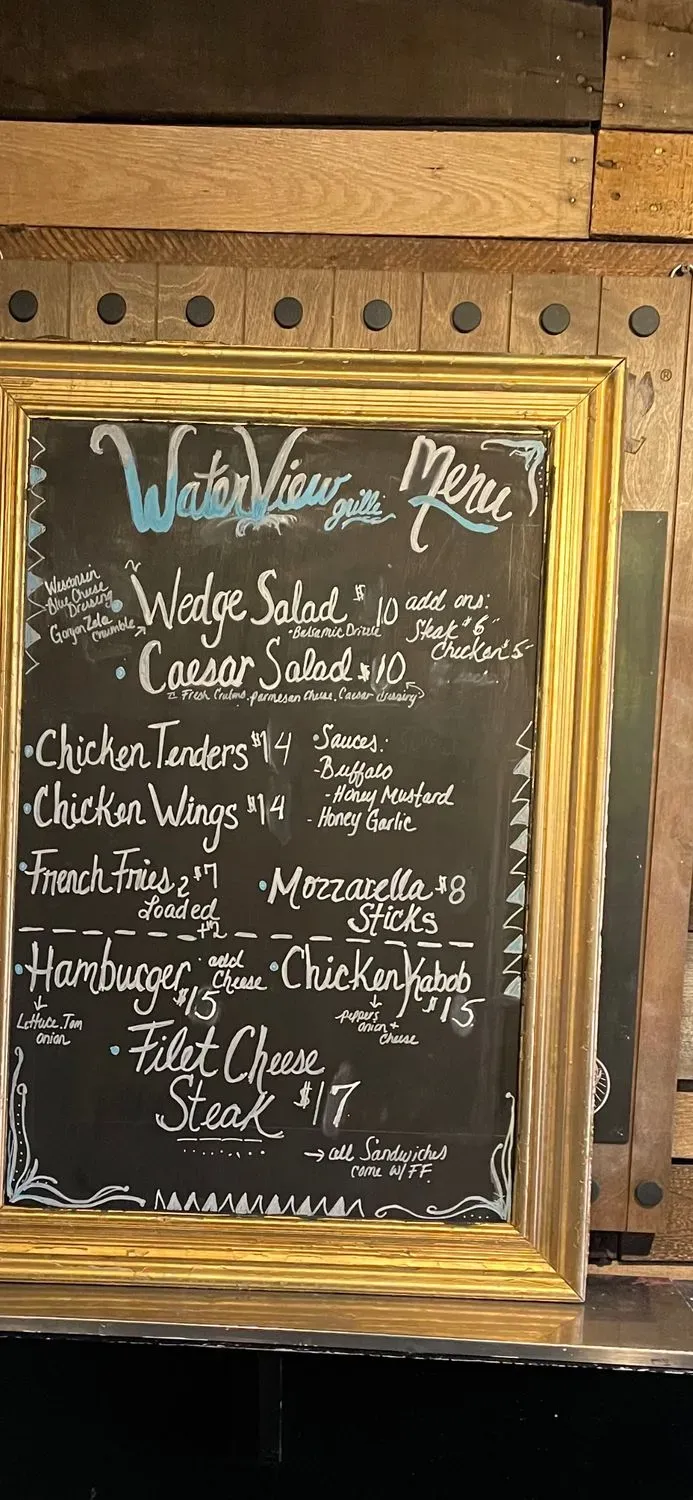 WaterView grille Menu
Wisconsin
Blue Cheese
Dressing
GorgonZola
Crumble
Wedge Salad $10
•Balsamic Drizzle
add ons:
Steak $6
Chicken $5
Caesar Salad $10
Fresh Crutons, parmesan cheese, Caesar dressing
•Chicken Tenders $14
•Chicken Wings $14
•Sauces:
-Buffalo
-Honey Mustard
-Honey Garlic
•French Fries $7
Loaded
+$2
•Mozzarella $8
Sticks
•Hamburger
$15
add
Cheese
Lettuce, Tom
onion
•Chicken Kabob
$15
peppers
onion +
cheese
•Filet Cheese
Steak $17
→all Sandwiches
come w/FF.
®